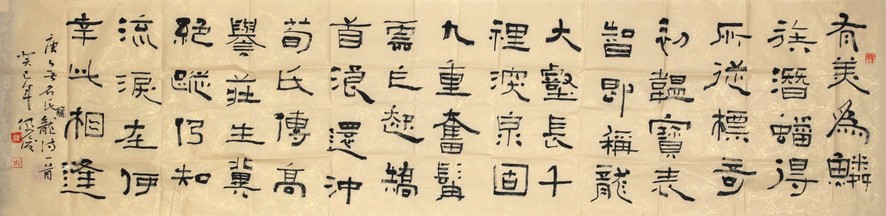 有美為鱗
族潛蟠得
所從標奇
初韞寶表
智即稱龍
大壑長千
裡深泉固
九重奮髯
雲乍起矯
首浪還冲
荀氏傳高
譽莊生冀
絕蹤仍知
流淚在何
幸此相逢
唐人無名氏驪龍詩一首
癸巳年